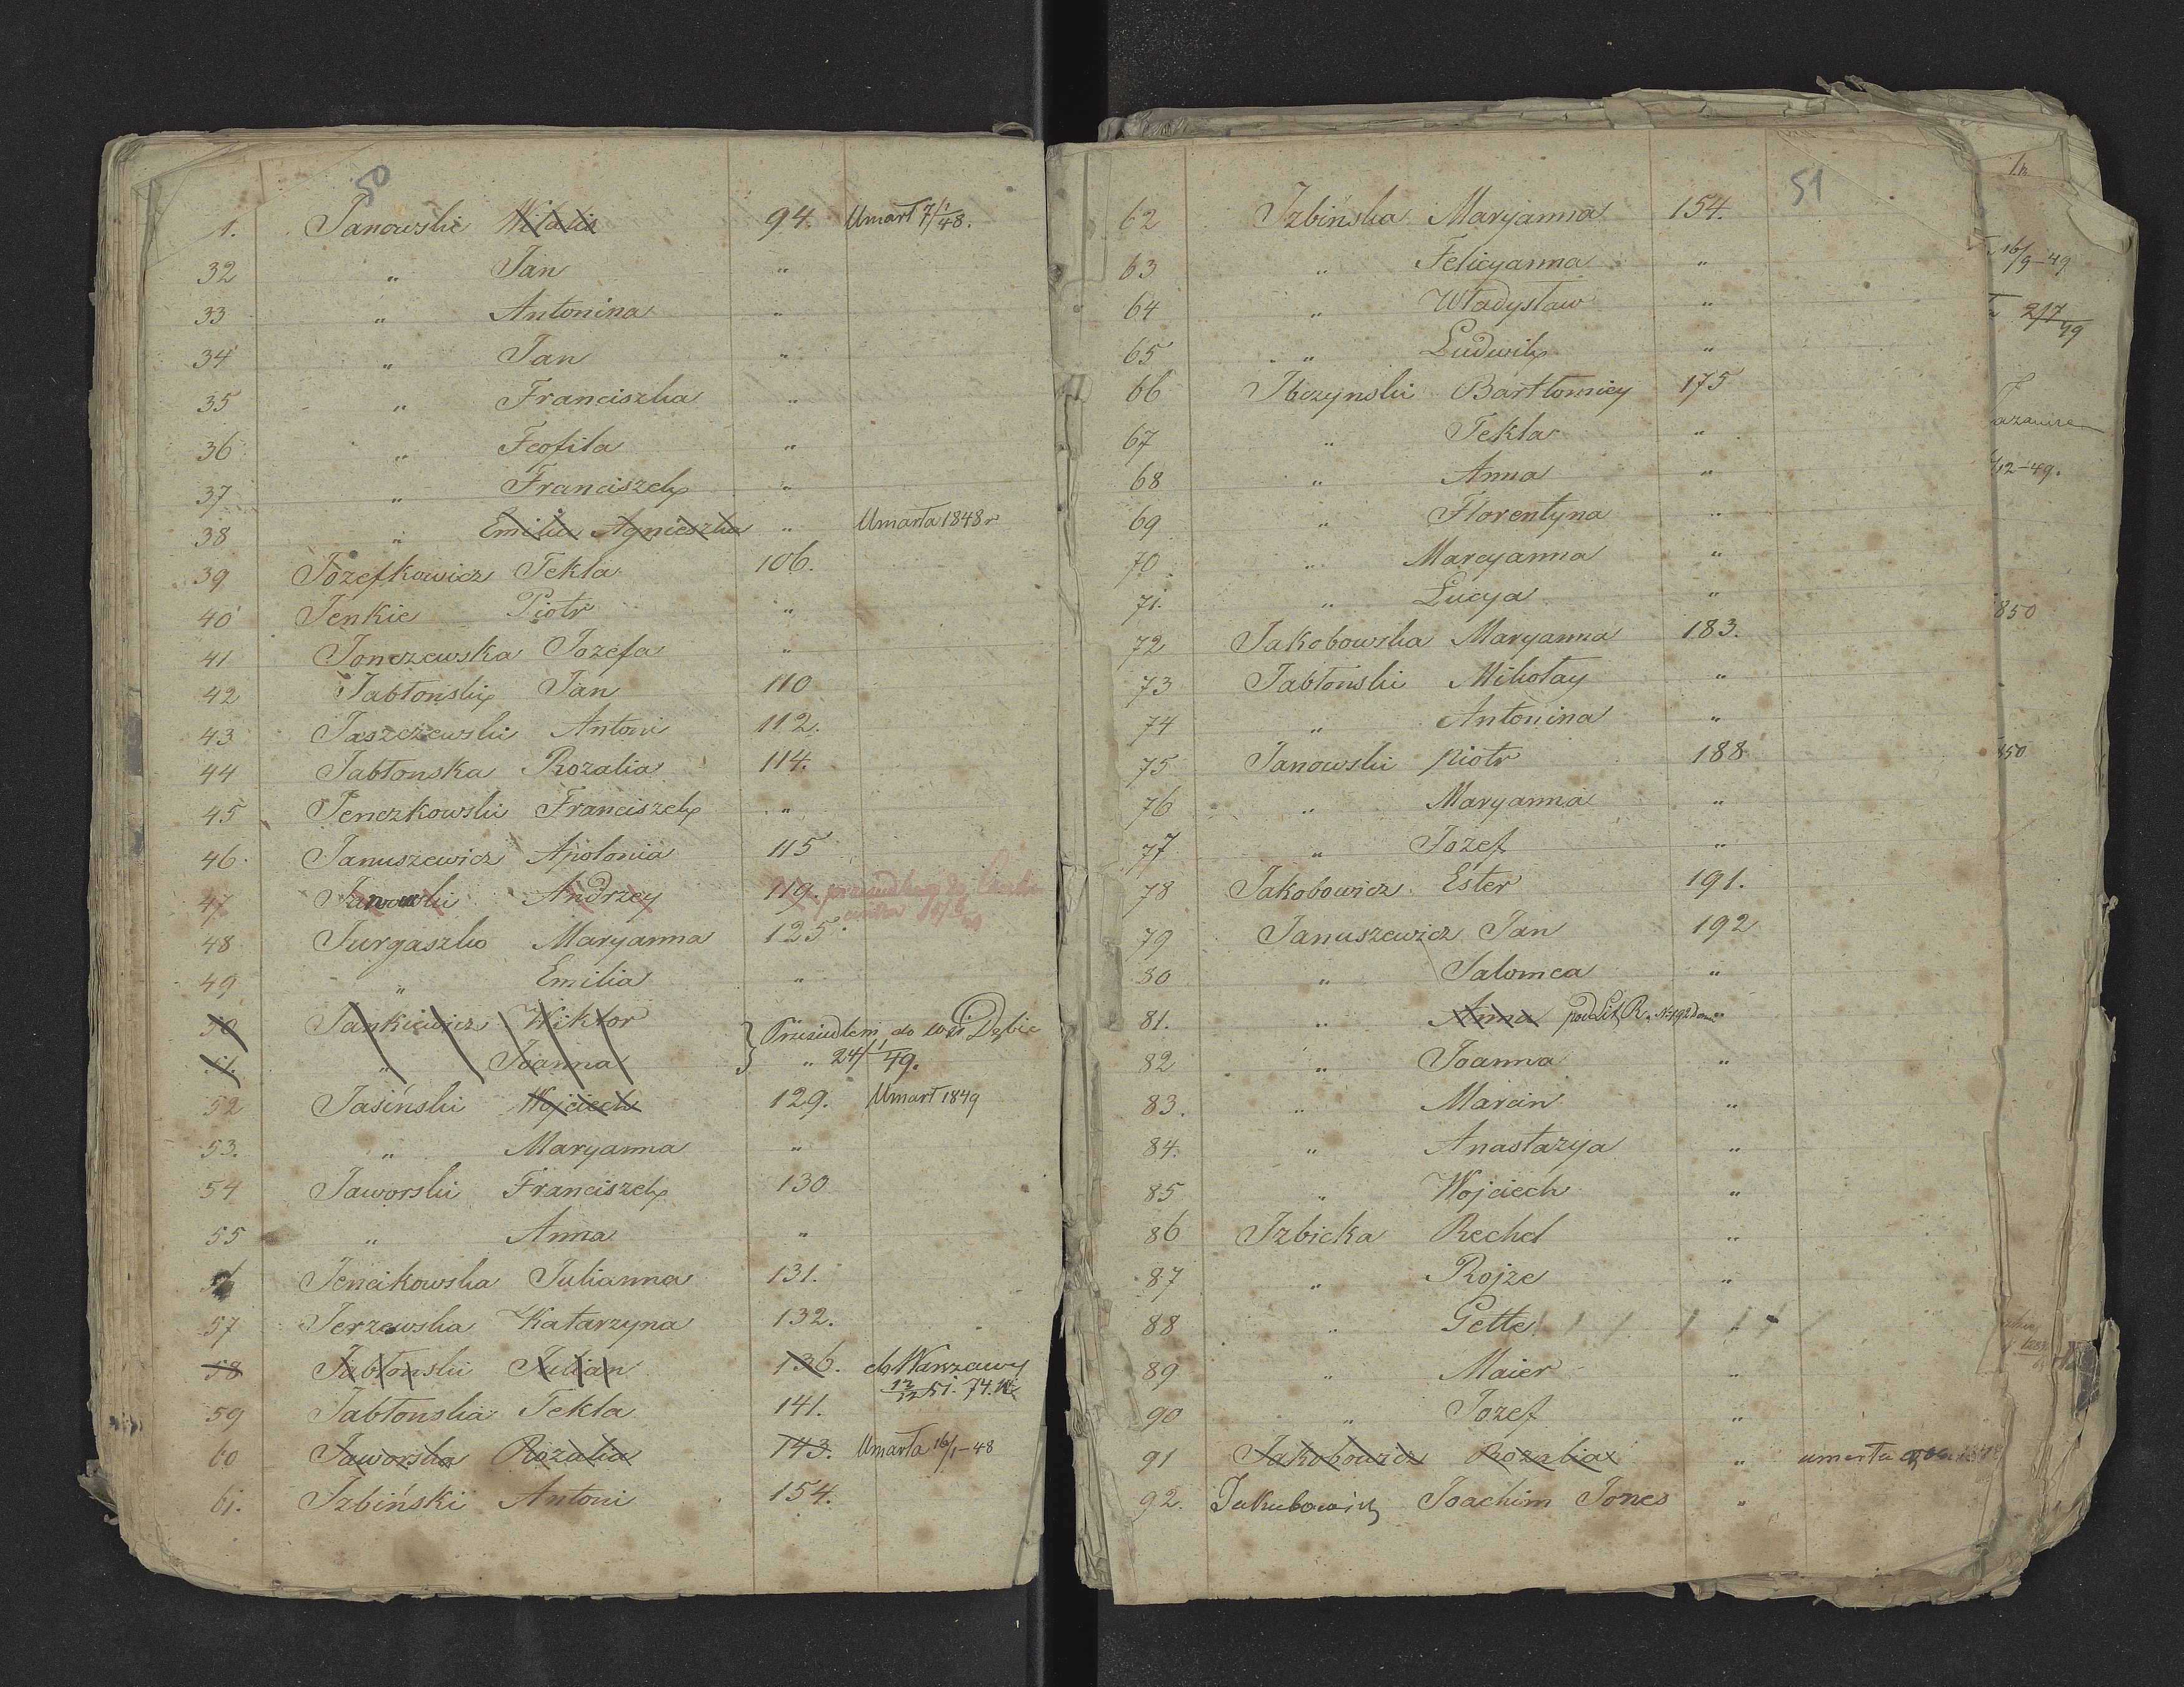 50
1. Janowski Witalis 94. Umarł 7/1 48.
32 " Jan "
33 " Antonina "
34 " Jan "
35 " Franciszka "
36 " Teofila "
37 " Franciszek "
38 " Emilia Agnieszka " Umarła 1848 r
39 Józefkowicz Tekla 106.
40 Jenkie Piotr "
41 Jonczewska Jozefa "
42 Jabłoński Jan 110
43 Jaszczewski Antoni 112.
44 Jabłonska Rozalia 114.
45 Jenczkowski Franciszek "
46 Januszewicz Apolonia 115
47 Janowski Andrzey 119.
48 Jurgaszko Maryanna 125
49 " Emilia "
50 Jankiewicz Wiktor } Przesiedleni do wsi Dębie
51. " Joanna " 24/1 49.
52 Jasiński Wojciech 129. Umarł 1849
53. " Maryanna "
54 Jaworski Franciszek 130
55 " Anna "
56 Jencikowska Julianna 131.
57 Jerzewska Katarzyna 132.
58 Jabłonski Julian 136. do Warszawy
12/12 51. 74.
59 Jabłonska Tekla 141.
60 Jaworska Rozalia 143. Umarła 16/1-48
61. Izbiński Antoni 154.
51
62 Izbińska Maryanna 154.
63 " Felicyanna "
64 " Władysław "
65 " Ludwik "
66 Ibczynski Bartłomiey 175
67 " Tekla "
68 " Anna "
69 " Florentyna "
70 " Marcyanna "
71. " Lucya "
72 Jakobowska Maryanna 183.
73 Jabłonski Mikołay "
74 " Antonina "
75 Janowski Piotr 188
76 " Maryanna "
77 " Jozef "
78 Jakobowicz Ester 191.
79 Januszewicz Jan 192
80 " Salomea "
81. " Anna pod Lit. R. "
82 " Joanna "
83. " Marcin "
84. " Anastazya "
85 " Wojciech "
86 Izbicka Rechel "
87 " Rojze "
88 " Gette "
89 " Maier "
90 " Jozef "
91 Jakobowicz Rozalia " umarła
92. Jakubowicz Joachim Jones "
16/9-49
2/7 49
12-49.
850
850